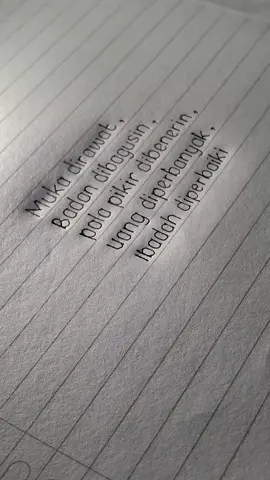 Muka dirawat,
Badan dibagusin,
pola pikir dibenerin,
uang diperbanyak,
Ibadah diperbaiki